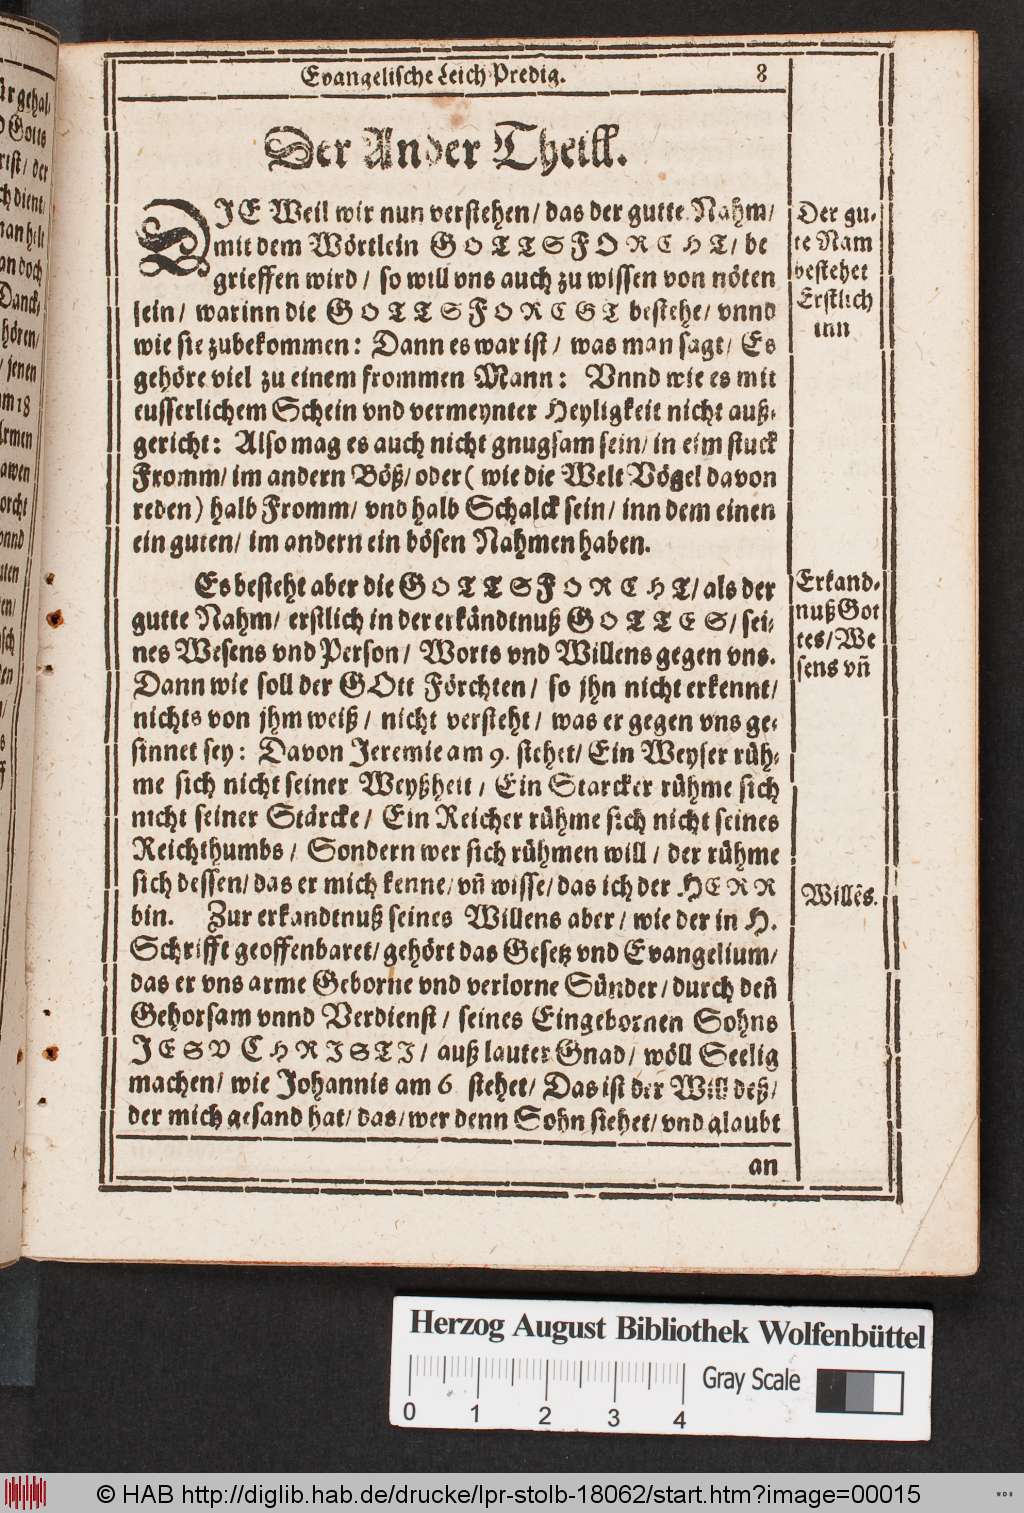 Evangelische Leich Predig. 8
Der Ander Theill.
DIE Weil wir nun verstehen/ das der gutte Nahm/
mit dem Wörtlein GOTTSFORCHT/ be
grieffen wird / so will vns auch zu wissen von nöten
sein/ warinn die GOTTSFORCGT bestehe/ vnnd
wie sie zubekommen: Dann es war ist / was man sagt/ Es
gehöre viel zu einem frommen Mann: Vnnd wie es mit
eusserlichem Schein vnd vermeynter Heyligkeit nicht auß-
gericht: Also mag es auch nicht gnugsam sein/ in eim stuck
Fromm/ im andern Böß/ oder ( wie die Welt Vögel davon
reden) halb Fromm/ vnd halb Schalck sein/ inn dem einen
ein guten/ im andern ein bösen Nahmen haben.
Es besteht aber die GOTTSFORCHT/ als der
gutte Nahm/ erstlich in der erkändtnuß GOTTES/ sei-
nes Wesens vnd Person/ Worts vnd Willens gegen vns.
Dann wie soll der GOtt Förchten/ so jhn nicht erkennt/
nichts von jhm weiß / nicht versteht / was er gegen vns ge-
sinnet sey: Davon Jeremie am 9. stehet/ Ein Weyser rüh-
me sich nicht seiner Weyßheit / Ein Starcker rühme sich
nicht seiner Stärcke/ Ein Reicher rühme sich nicht seines
Reichthumbs / Sondern wer sich rühmen will / der rühme
sich dessen/ das er mich kenne/ vñ wisse/ das ich der HERR
bin. Zur erkandtnuß seines Willens aber / wie der in H.
Schrifft geoffenbaret/ gehört das Gesetz vnd Evangelium/
das er vns arme Geborne vnd verlorne Sünder/ durch deñ
Gehorsam vnnd Verdienst / seines Eingebornen Sohns
JESV CHRISTI/ auß lauter Gnad/ wöll Seelig
machen/ wie Johannis am 6 stehet/ Das ist der Will deß/
der mich gesand hat/ das/ wer denn Sohn siehet/ vnd glaubt
an
Der gu-
te Nam
bestehet
Erstlich
inn
Erkand-
nuß Got
tes/ We
sens vñ
Willẽs.
ür gehal-
Gotts
rist/ der
ch dient/
man helt
an doch
Danck/
hören/
/ jenen
am 18
Armen
awen
orcht
vnnd
Herzog August Bibliothek Wolfenbüttel
Gray Scale
0 1 2 3 4
© HAB http://diglib.hab.de/drucke/lpr-stolb-18062/start.htm?image=00015